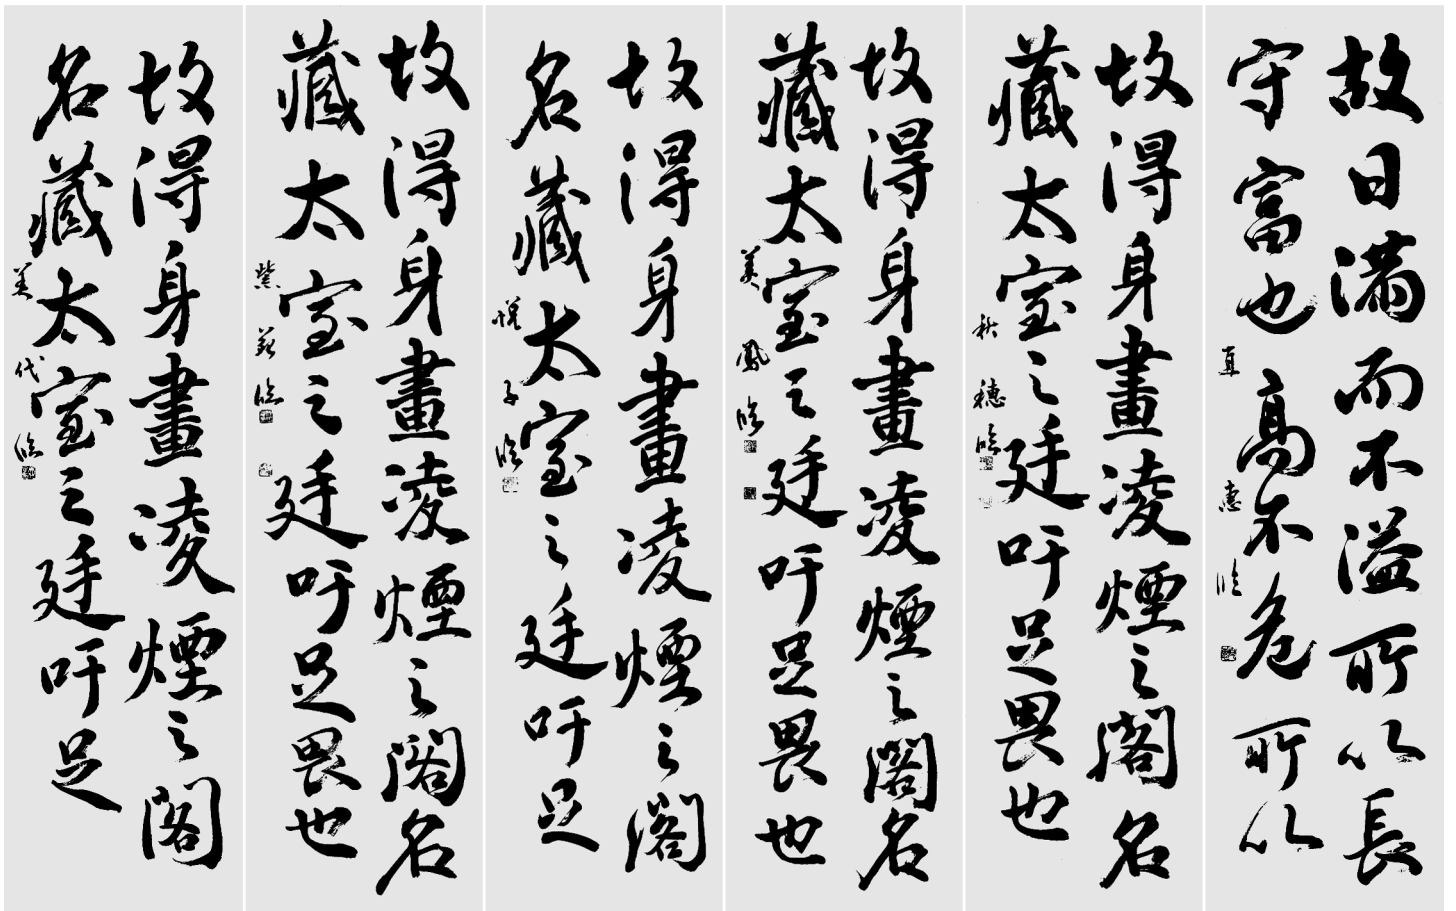 故曰滿而不溢所以長
守富也高不危所以
直惠臨
故得身畫凌煙之閣名
藏太室之廷吁足畏也
秋穗臨
故得身畫凌煙之閣名
藏太室之廷吁足畏也
美鳳臨
故得身畫凌煙之閣
名藏太室之廷吁足
悦子臨
故得身畫凌煙之閣名
藏太室之廷吁足畏也
紫 臨
故得身畫凌煙之閣
名藏太室之廷吁足
美代臨